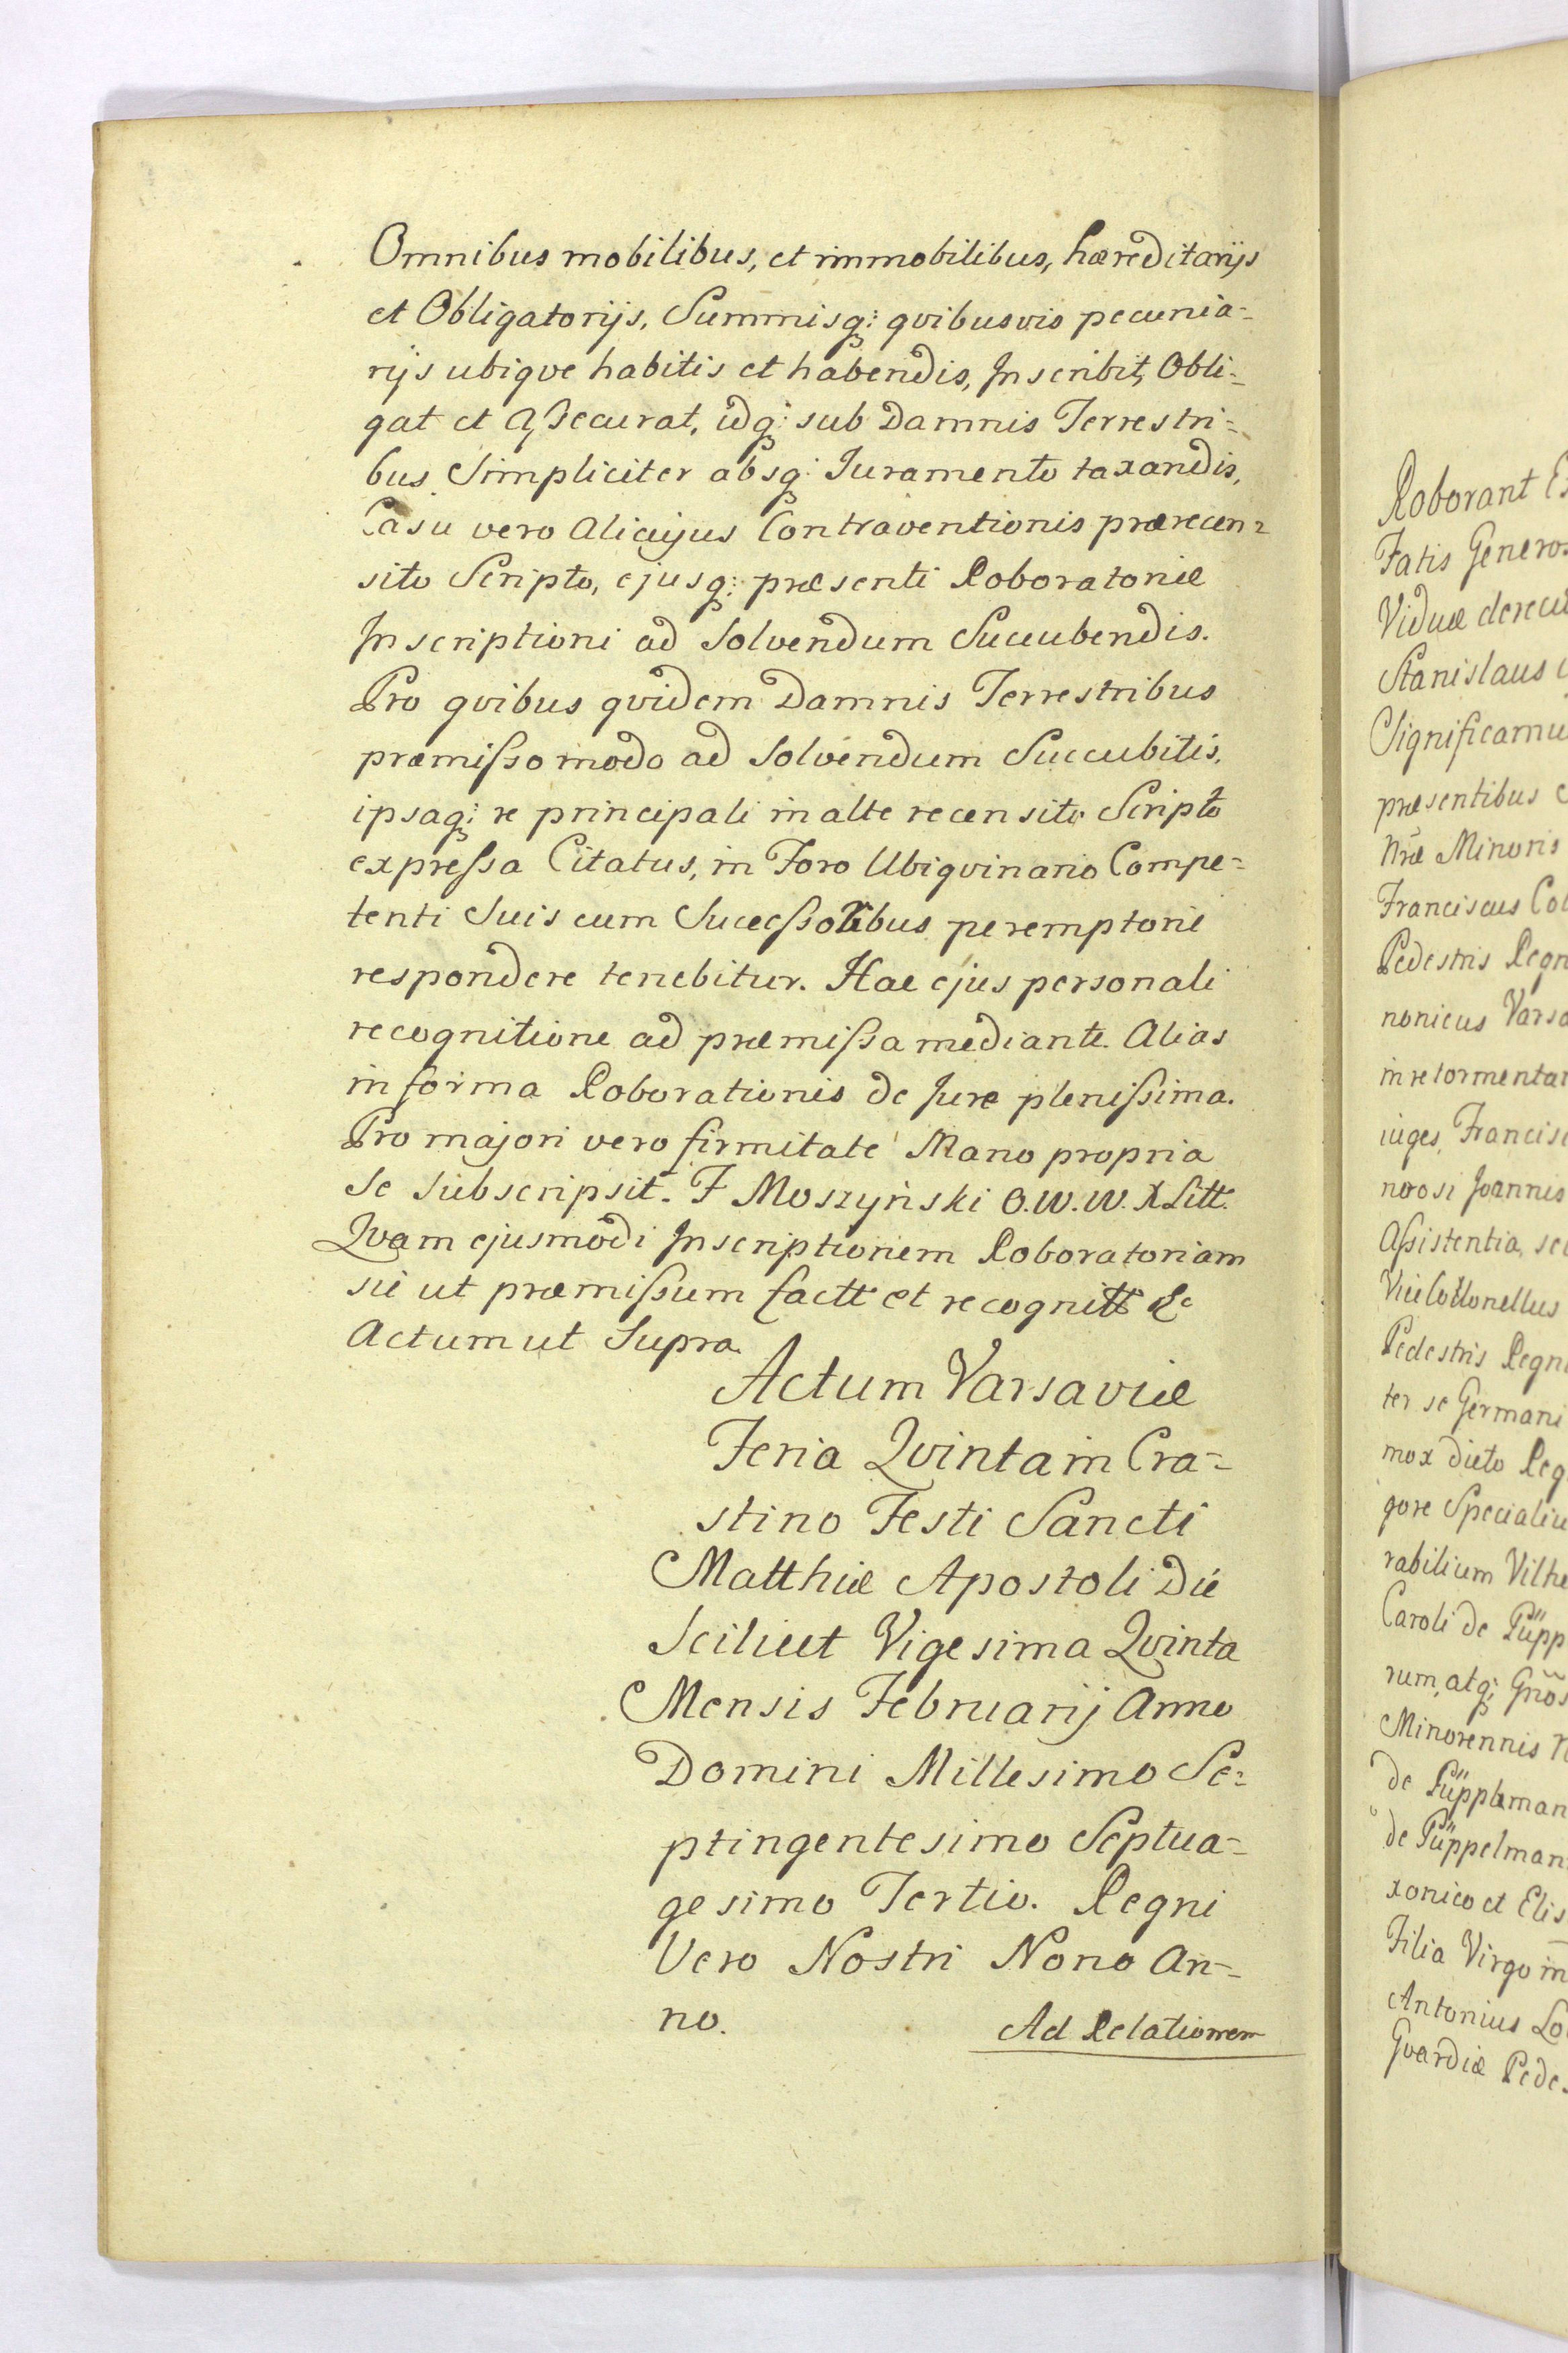 Omnibus mobilibus, et immobilibus, hæreditarijs
et Obligatorijs, Summisq; qvibusvis pecunia=
rijs ubiqve habitis et habendis, Inscribit, Obli=
gat et Aßecurat, idq; sub Damnis Terrestri=
bus Simpliciter absq; Juramento taxandis,
Casu vero Alicujus Contraventionis prærecen=
sito Scripto, ejusq; præsenti Roboratoriæ
Inscriptioni ad Solvendum Succubendis.
Pro qvibus qvidem Damnis Terrestribus
præmißo modo ad Solvendum Succubitis,
ipsaq; re principali in alte recensito Scripto
expreßa Citatus, in Foro Ubiqvinario Compe=
tenti Suis cum Succeßoribus peremptorie
respondere tenebitur. Hac ejus personali
recognitione ad præmißa mediante. Alias
in forma Roborationis de Jure plenißima.
Pro majori vero firmitate Manu propria
Se Subscripsit. F Moszyński O.W.W.X Litt.
Qvam ejusmodi Inscriptionem Roboratoriam
sic ut præmißum factt et recognitt &c
Actum ut Supra.
Actum Varsaviæ
Feria Qvinta in Cra=
stino Festi Sancti
Matthiæ Apostoli Die
Scilicet Vigesima Qvinta
Mensis Februarij Anno
Domini Millesimo Se=
ptingentesimo Septua=
gesimo Tertio. Regni
Vero Nostri Nono An=
no.
Ad Relationem
Roborant
Fatis Genero
Viduæ
Stanislaus
Significamu
præsentibus
Nræ Minoris
Franciscus Co
Pedestris Regn
nonicus Varsa
in re tormentar
iuges, Francisc
nerosi Joannis
Aßistentia, se
Vicecollonellus
Pedestris Regni
ter se Germani
mox dicto Reg
gore Specialiu
rabilium Vilhe
Caroli de Püpp
rum, atq; Gños
Minorennis
de Püppleman
de Püppelman
xonico et Elis
Filia Virgo in
Antonius Lo
Gvardiæ Pede